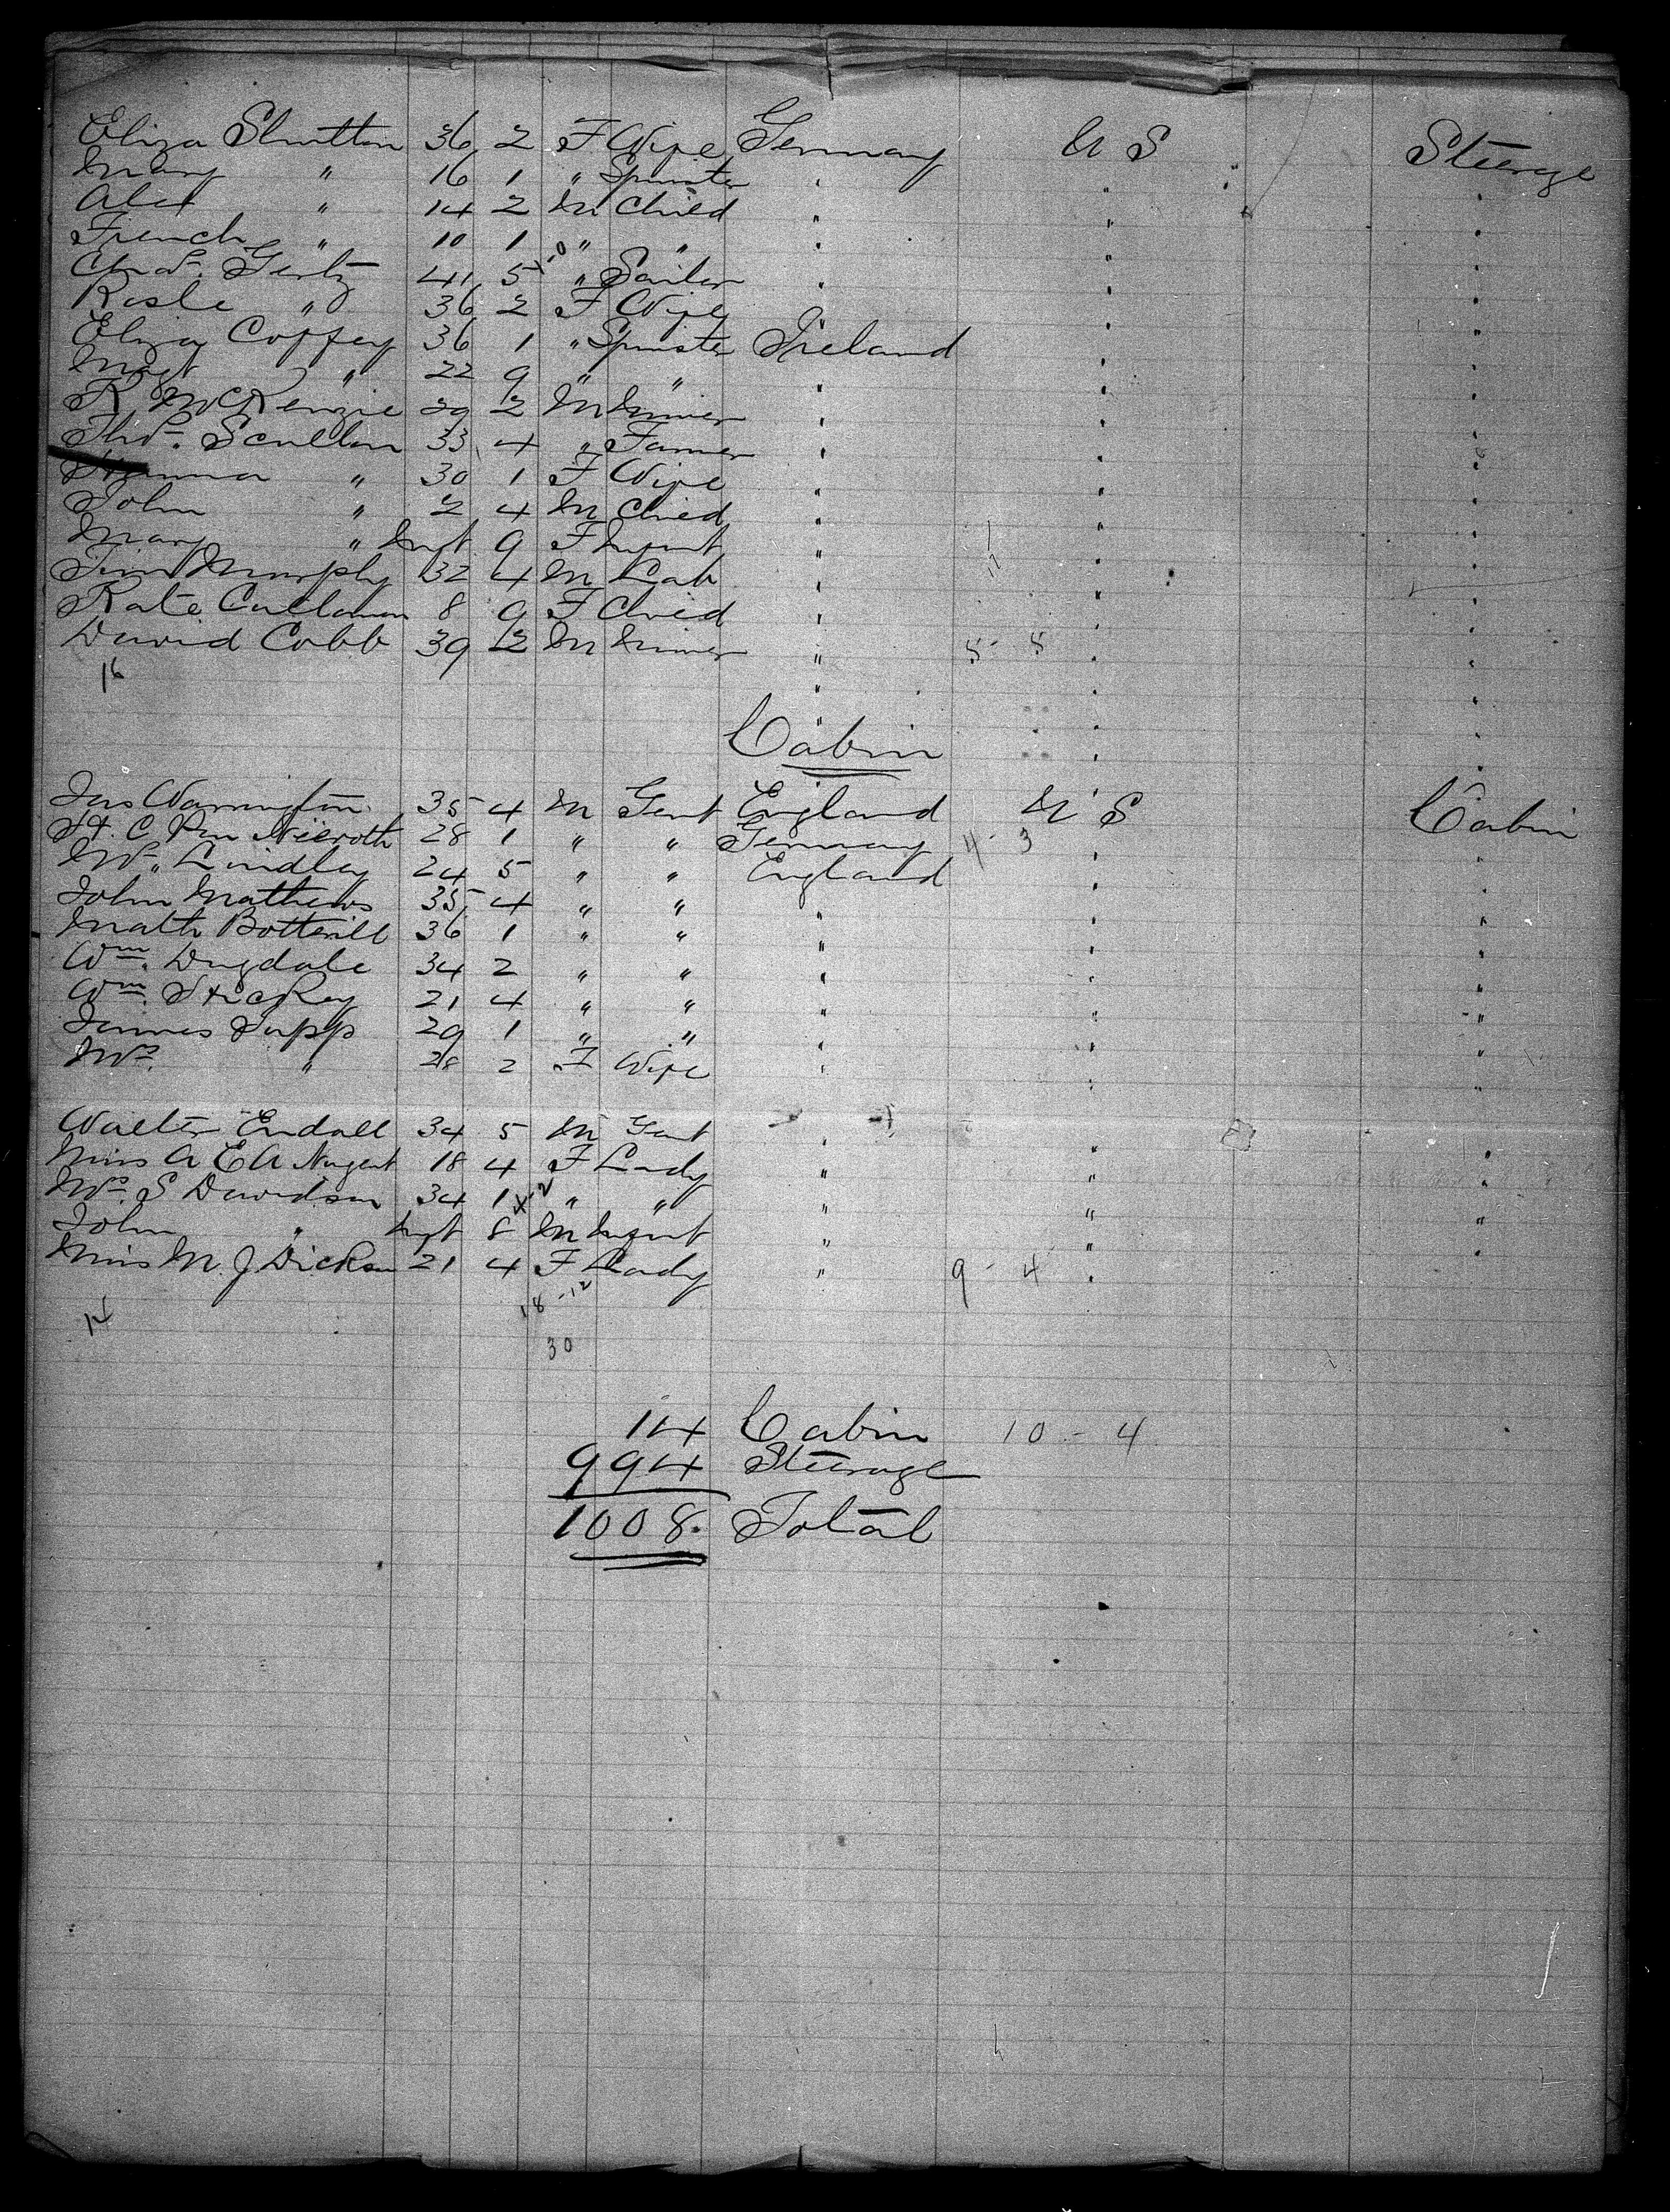 Eliza Shutton 36 2 F Wife Germany U S Steerage
Mary " 16 1 " Spinster " " "
Alex " 14 2 M Child " " "
French " 10 1 " " " " "
Chas. Gertz 41 5 1-0 " Sailor " " "
Rosle " 36 2 F Wife " "
Eliza Coffey 36 1 " Spinster Ireland " "
Margt " 22 9 " " " " "
R McKenzie 29 2 M Miner " " "
Thos. Scullan 33 4 " Farmer " " "
Hanna " 30 1 F Wife " " "
John " 2 4 M Child " " "
Mary " Inft 9 F Infant " " "
Tim Murphy 32 4 M Lab " " "
Kate Callanan 8 9 F Child " " "
David Cobb 39 2 M Miner " 8 - 8 " "
16
Cabin
Jas Warrington 35 4 M Gent England U S Cabin
28 1 " " Germany 4 - 3 " "
Lindley 24 5 " " England " "
John Mathews 35 4 " " " " "
Math Botterill 36 1 " " " " "
Wm. Dugdale 34 2 " " " " "
Wm. Stickey 21 4 " " " " "
James Jupp 29 1 " " " " "
Mrs. " 28 2 F Wife " " "
Walter Endall 34 5 M Gent " " "
Miss A E A Nugent 18 4 F Lady " " "
Mrs. S Davidson 34 1 4-2 " " " " "
John " Inft 8 M Infant " " "
Miss M. J Dickson 21 4 F Lady " 9 - 4 "
14
18-12
30
14 Cabin 10 - 4
994 Steerage
1008. Total